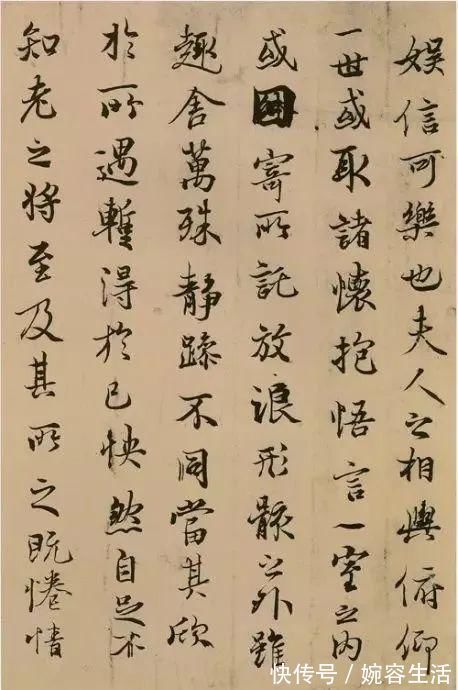 娛信可樂也夫人之相與俯仰
一世或取諸懷抱悟言一室之内
或因寄所託放浪形骸之外雖
趣舍萬殊靜躁不同當其欣
於所遇暫得於己怏然自足不
知老之將至及其所之既惓情
快传号/婉容生活